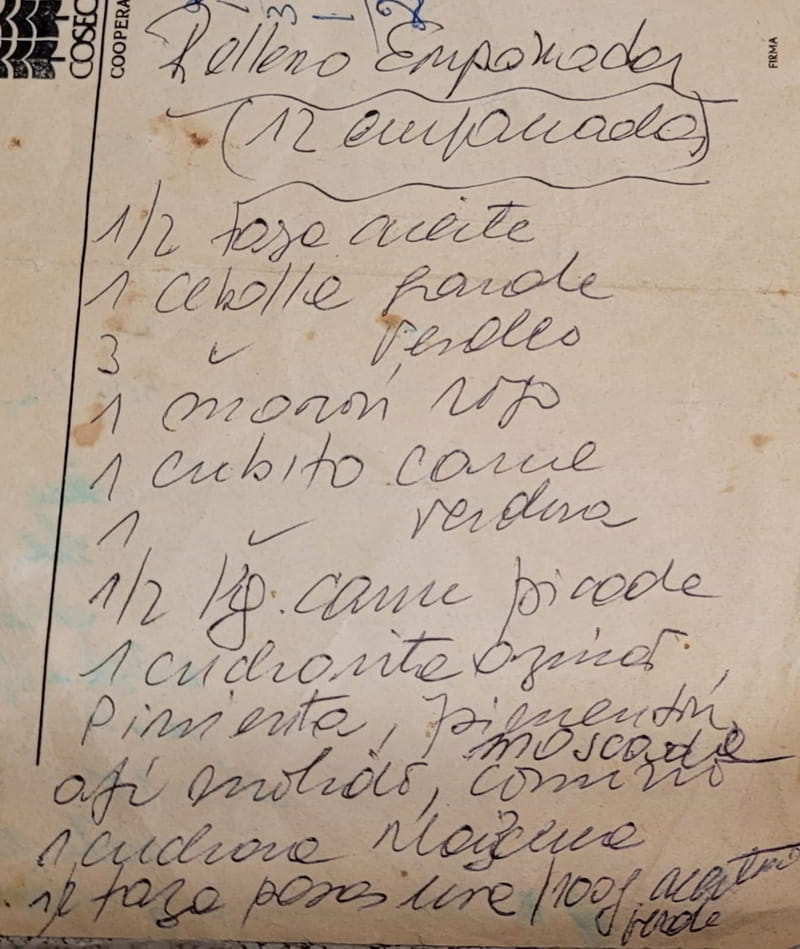 COSEC
COOPERA
FIRMA
3 1
Relleno Empanadas
(12 empanadas)
1/2 taza aceite
1 cebolla grande
3 " verdeo
1 morrón rojo
1 cubito carne
1 " verdura
1/2 kg. carne picada
1 cucharita azúcar,
Pimienta, pimentón,
moscada
ají molido, comino
1 cuchara Maizena
1/2 taza pasas uva / 100g. aceituna
verde